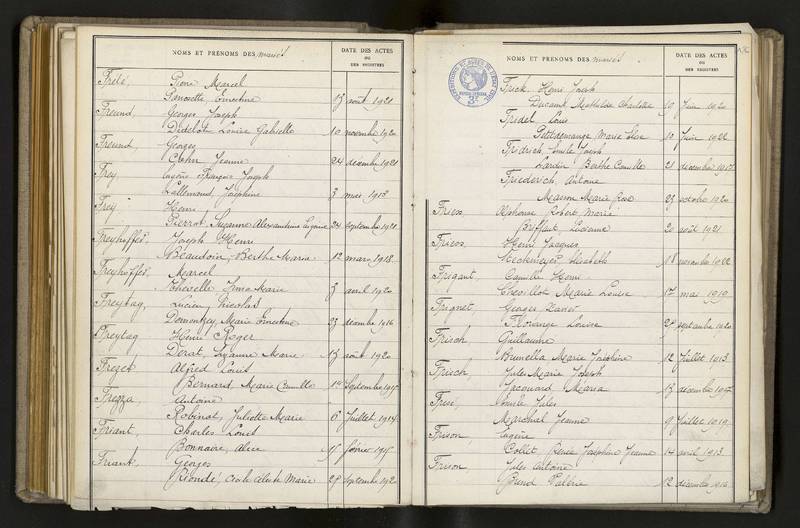 NOMS ET PRÉNOMS DES mariés
DATE DES ACTES
OU
DES REGISTRES
Frété, Pierre Marcel
Ernestine 13 août 1921
Freund, Georges Joseph
Didelot Louise Gabrielle 10 novembre 1920
Freund Georges
Caher Jeanne 24 décembre 1921
Frey François Joseph
Lallemand, Joséphine 3 mai 1913
Frey Henri
Pierrot, Suzanne Alexandrine 24 septembre 1921
Freyhoffer, Joseph Henri
Beaudoin, Berthe Maria 12 mars 1918
Freyhoffer Marcel
Thevelle Irma Marie 3 avril 1920
Freytag, Lucien, Nicolas
Domontzey, Marie Ernestine 23 décembre 1916
Freytag Henri Roger
Dorat, Suzanne Marie 13 août 1920
Frezet Alfred Louis
Bernard Marie Camille 14 septembre 1915
Frezza Antoine
Robinot, Juliette Marie 6 juillet 1914
Friant, Charles Louis
Bonnaire, Alice 15 février 1915
Friant, Georges
Cécile Marie 28 septembre 1920
NOMS ET PRÉNOMS DES mariés
DATE DES ACTES
OU
DES REGISTRES
Frick Henri Joseph
Ducamp Mathilde Charlotte 19 juin 1920
Fridel Louis
Petitdemange Marie 10 juin 1922
Fridrich, Emile Joseph
Lardin Berthe Camille 21 décembre 1912
Friederich, Antoine
Marie Rose 23 octobre 1920
Friess Alphonse Robert Marie
Briffaut, Lucienne 20 août 1921
Friess Henri Jacques
Meckmeyer Elisabeth 18 novembre 1922
Frigant, Camille Henri
Chevillot Marie Louise 17 mai 1919
Frignet Georges Xavier
Florange Louise 25 septembre 1920
Frisch Guillaume
Brunella Marie Joséphine 12 juillet 1913
Frisch, Jules Marie Joseph
Jacquard Maria 13 décembre 1917
Emile Jules
Maréchal Jeanne 9 juillet 1919
Frison, Eugène
Collet Renée Joséphine Jeanne 14 avril 1913
Frison Jules Antoine
Valérie 12 décembre 1916